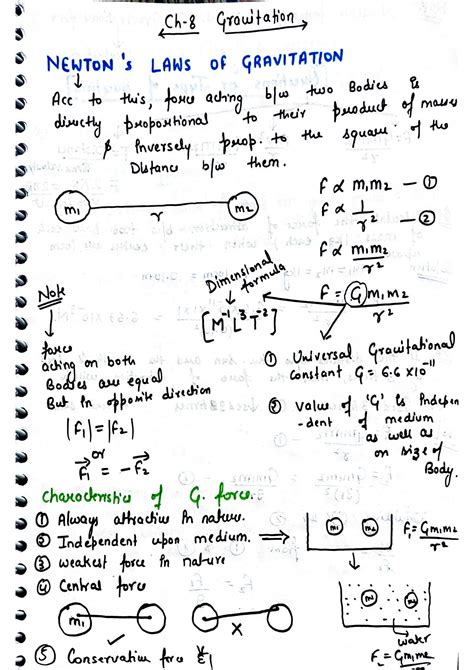 Ch-8 Gravitation
NEWTON'S LAWS OF GRAVITATION
Acc to this, force acting b/w two Bodies is
directly proportional to their product of masses
& Inversely prop. to the square of the
Distance b/w them.
m₁ r m₂
F ∝ m₁m₂ — ①
F ∝ 1/r² — ②
F ∝ m₁m₂/r²
F = G m₁m₂/r²
Dimensional formula
[M⁻¹L³T⁻²]
Note
force
acting on both
Bodies are equal
But in opposite direction
|F₁| = |F₂|
or
F₁ = -F₂
① Universal Gravitational
constant G = 6.6 ×10⁻¹¹
② Value of 'G' is Indepen
-dent of medium
as well as
on size of
Body.
Characteristics of G. force
① Always attractive in nature.
② Independent upon medium. ⟹
③ Weakest force in nature
④ Central force
m₁ m₂ F₁ = Gm₁m₂/r²
m₁
✓ X
m₁ m₂
water
F = Gm₁m₂
⑤ Conservative force